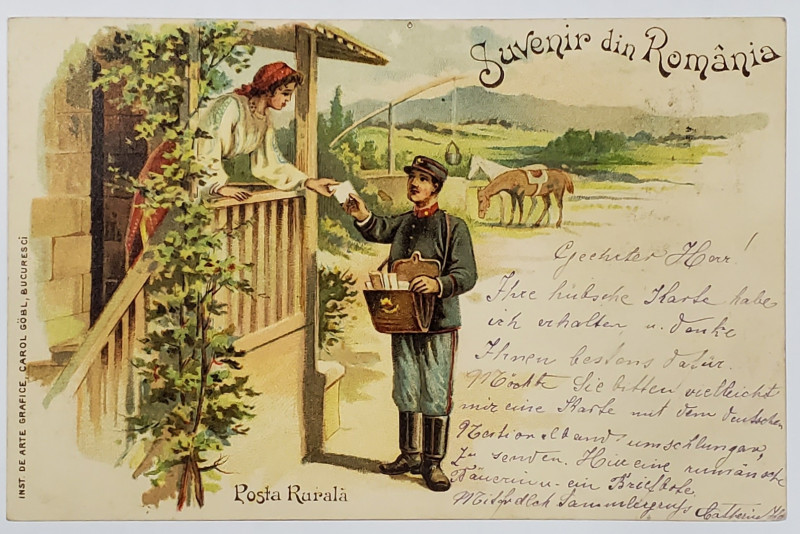 Suvenir din România
Geehrter Herr!
Ihre hübsche Karte habe
ich erhalten u. danke
Ihnen bestens dafür.
Möchte Sie bitten vielleicht
mir eine Karte mit dem deutschen
Nationalband umschlungen,
zu senden. Hier eine rumänische
Bäuerin u- ein Briefbote.
Sammlergruß Catherine
Posta Rurală
INST. DE ARTE GRAFICE, CAROL GÖBL, BUCURESCI